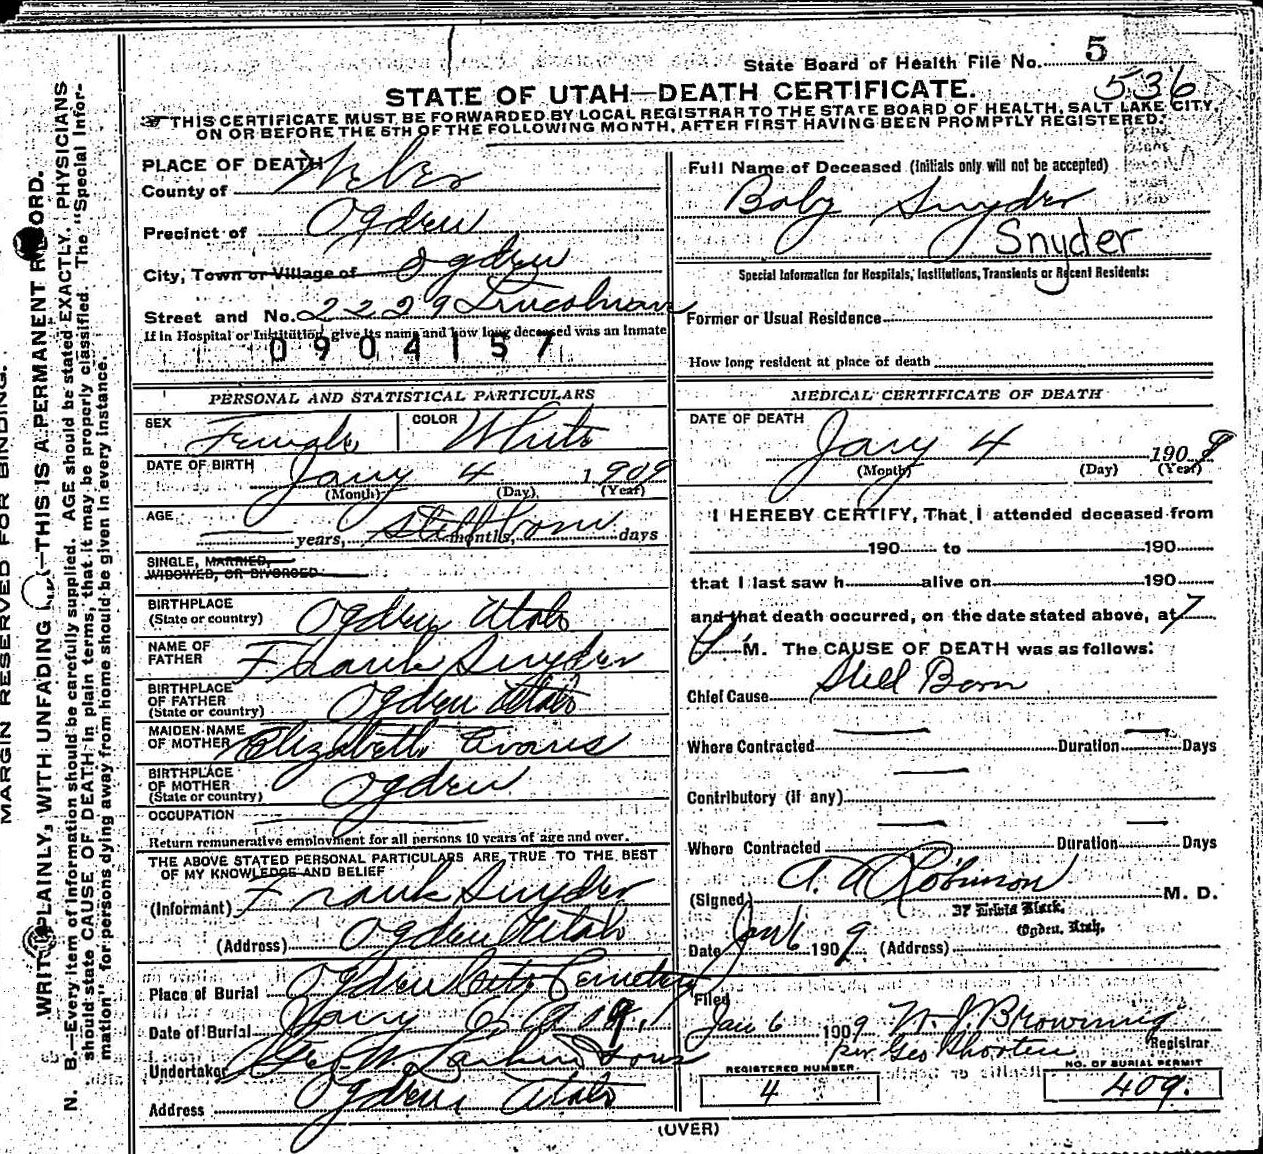 State Board of Health File No. 5
536
STATE OF UTAH—DEATH CERTIFICATE.
THIS CERTIFICATE MUST BE FORWARDED BY LOCAL REGISTRAR TO THE STATE BOARD OF HEALTH, SALT LAKE CITY,
ON OR BEFORE THE 5TH OF THE FOLLOWING MONTH, AFTER FIRST HAVING BEEN PROMPTLY REGISTERED.
PLACE OF DEATH
County of Weber
Precinct of Ogden
City, Town or Village of Ogden
Street and No. 2229 Lincoln ave
If in Hospital or Institution, give its name and how long deceased was an Inmate
0904157
PERSONAL AND STATISTICAL PARTICULARS
SEX Female COLOR White
DATE OF BIRTH Jany 4 1909
(Month) (Day) (Year)
AGE years, Stillborn months, days
SINGLE, MARRIED,
WIDOWED, OR DIVORCED
BIRTHPLACE
(State or country) Ogden Utah
NAME OF
FATHER Frank Snyder
BIRTHPLACE
OF FATHER
(State or country) Ogden Utah
MAIDEN NAME
OF MOTHER Elizabeth Evans
BIRTHPLACE
OF MOTHER
(State or country) Ogden
OCCUPATION
Return remunerative employment for all persons 10 years of age and over.
THE ABOVE STATED PERSONAL PARTICULARS ARE TRUE TO THE BEST
OF MY KNOWLEDGE AND BELIEF
(Informant) Frank Snyder
(Address) Ogden Utah
Place of Burial Ogden City Cemetery
Date of Burial Jany 6 1909.
Undertaker Geo. W. Larkin Sons
Address Ogden Utah
Full Name of Deceased (Initials only will not be accepted)
Baby Snyder
Snyder
Special Information for Hospitals, Institutions, Transients or Recent Residents:
Former or Usual Residence
How long resident at place of death
MEDICAL CERTIFICATE OF DEATH
DATE OF DEATH
Jany 4 1909
(Month) (Day) (Year)
I HEREBY CERTIFY, That I attended deceased from
190 to 190
that I last saw h alive on 190
and that death occurred, on the date stated above, at 7
P M. The CAUSE OF DEATH was as follows:
Chief Cause Still Born
Where Contracted Duration Days
Contributory (if any)
Where Contracted Duration Days
(Signed) A. A. Robinson M. D.
Ogden, Utah.
Date Jan 6 1909 (Address)
Filed
Jan 6 1909 W. J. Browning
Registrar
per Geo Shorten
REGISTERED NUMBER
4
NO. OF BURIAL PERMIT
409.
(OVER)
MARGIN RESERVED FOR BINDING.
WRITE PLAINLY, WITH UNFADING INK—THIS IS A PERMANENT RECORD.
N. B.—Every item of information should be carefully supplied. AGE should be stated EXACTLY. PHYSICIANS
should state CAUSE OF DEATH in plain terms, that it may be properly classified. The "Special Infor-
mation" for persons dying away from home should be given in every instance.